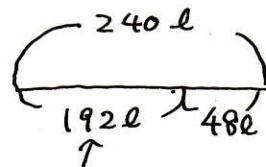 240ℓ
192ℓ 48ℓ